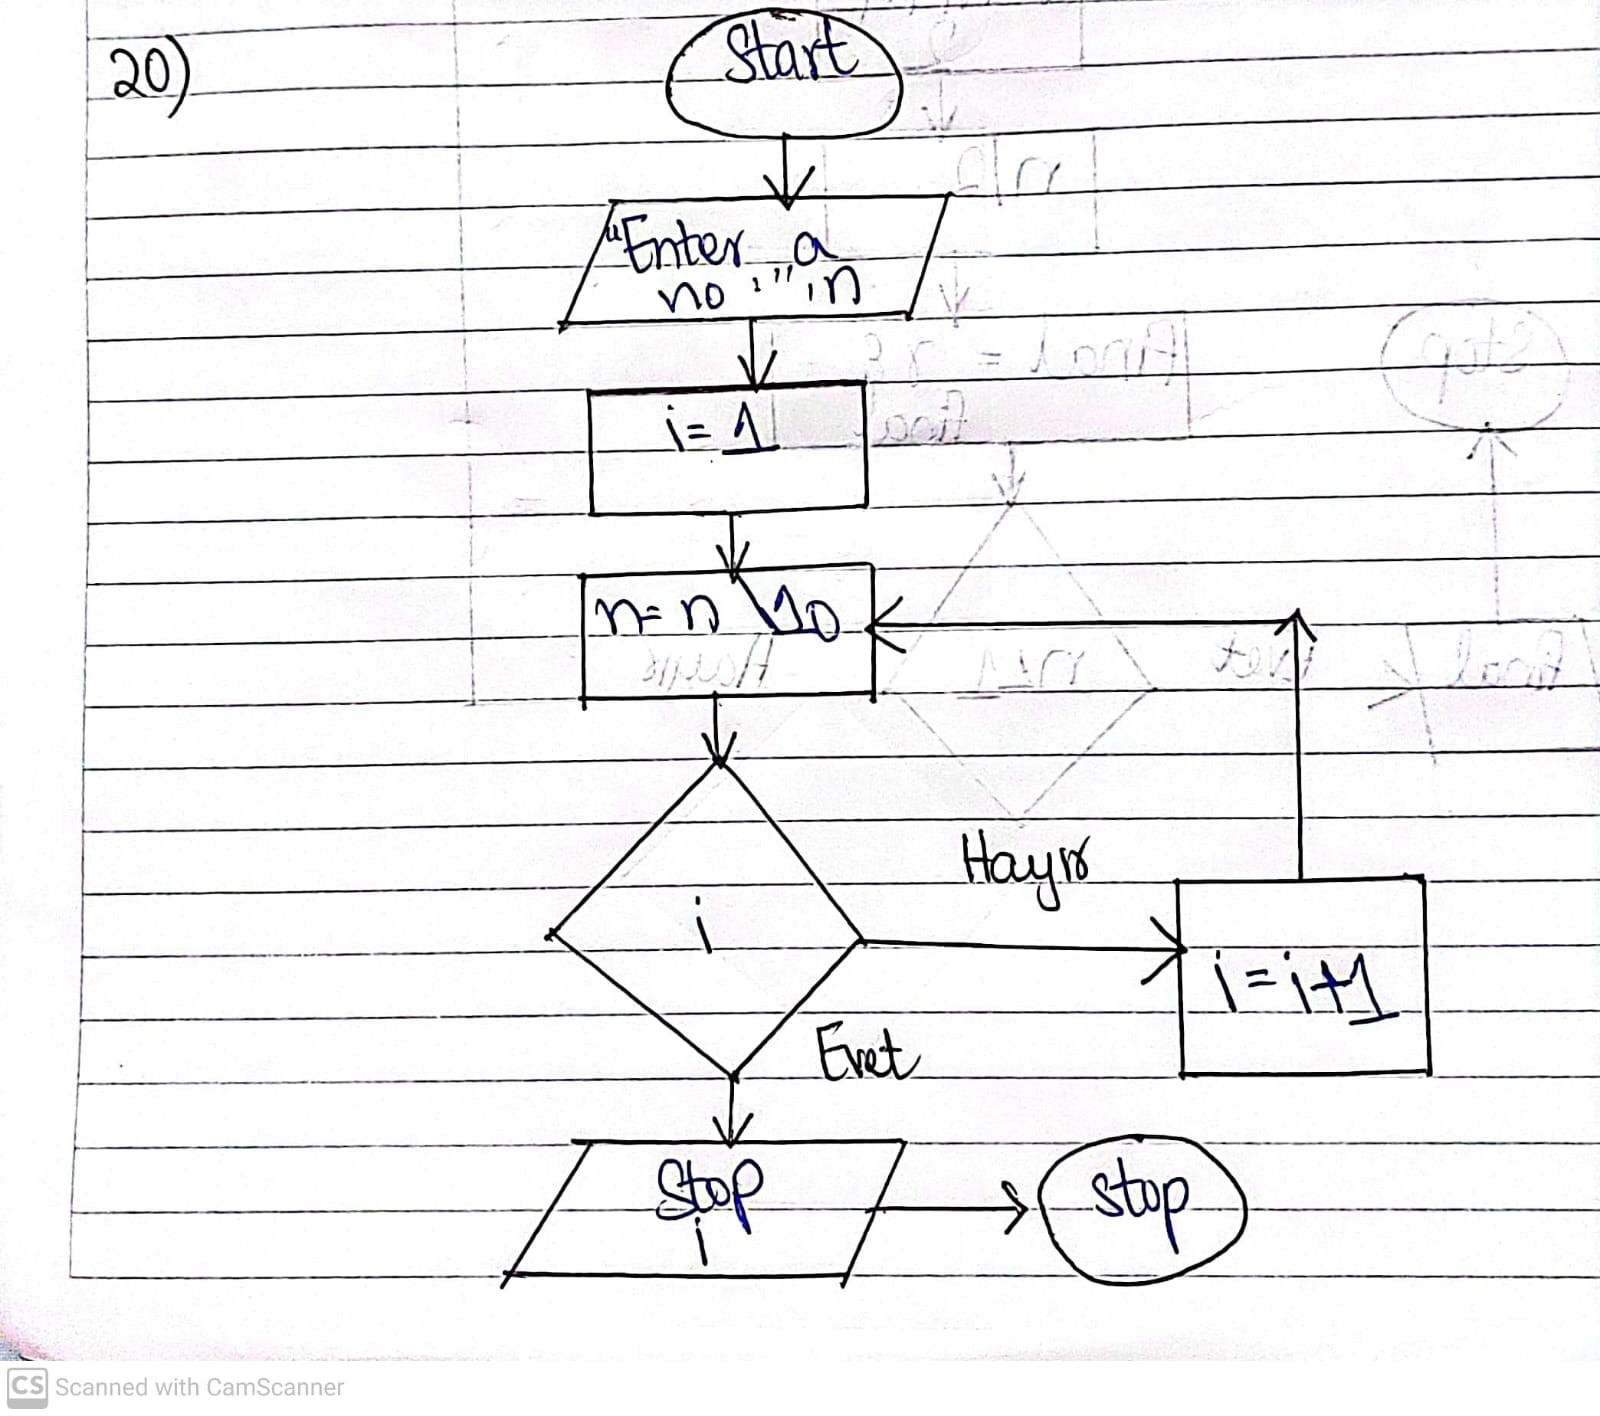 20)
Start
"Enter a
no :", n
i= 1
n= n \10
i
Hayır
i=i+1
Evet
Stop
i
stop
CS Scanned with CamScanner